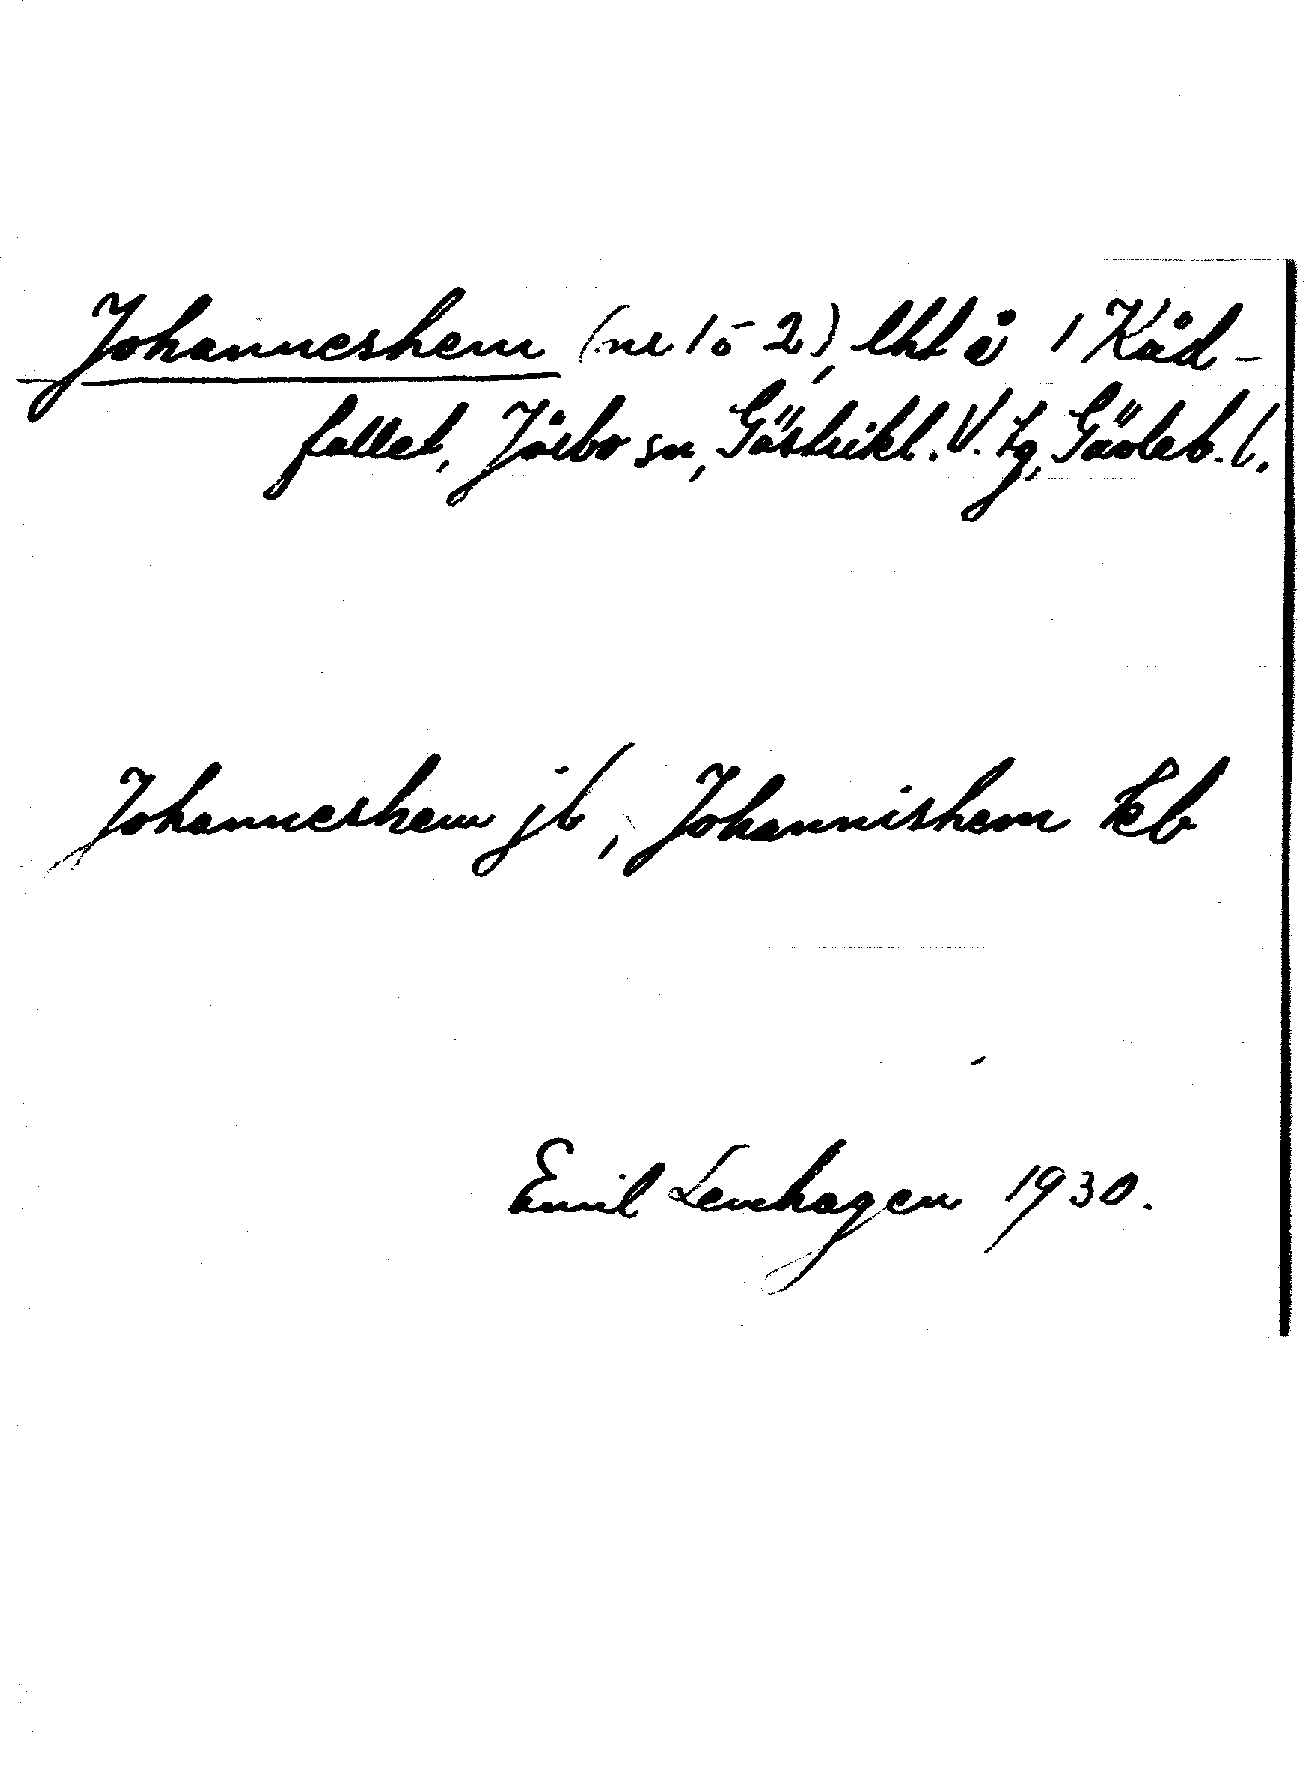 Johanneshem (nr 1 o 2), lht å 1 Kåd-
fallet, Järbo sn, Gästrikl. V. tg, Gävleb. l.
Johanneshem jb, Johannishem kb
Emil Lenhagen 1930.